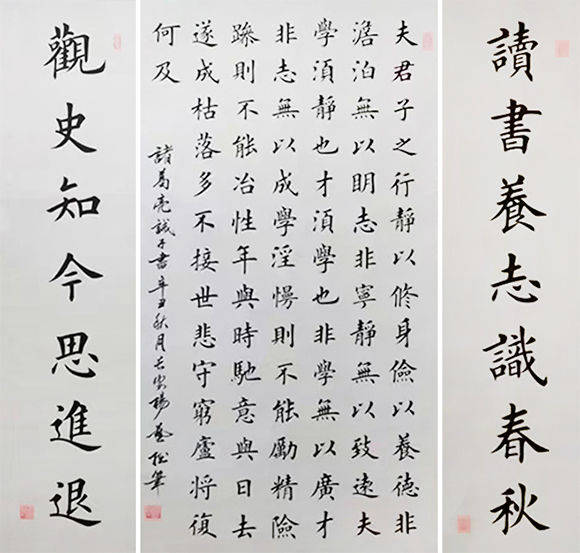 讀書養志識春秋
夫君子之行靜以修身儉以養德非
澹泊無以明志非寧靜無以致遠夫
學須靜也才須學也非學無以廣才
非志無以成學淫慢則不能勵精險
躁則不能冶性年與時馳意與日去
遂成枯落多不接世悲守窮廬將復
何及
諸葛亮誡子書辛丑秋月長安楊
觀史知今思進退